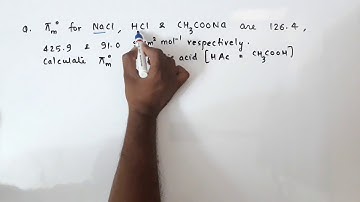 Q. π°m for NaCl, HCl & CH3COONa are 126.4,
425.9 & 91.0 m² mol⁻¹ respectively.
Calculate π°m acid [HAc = CH3COOH]